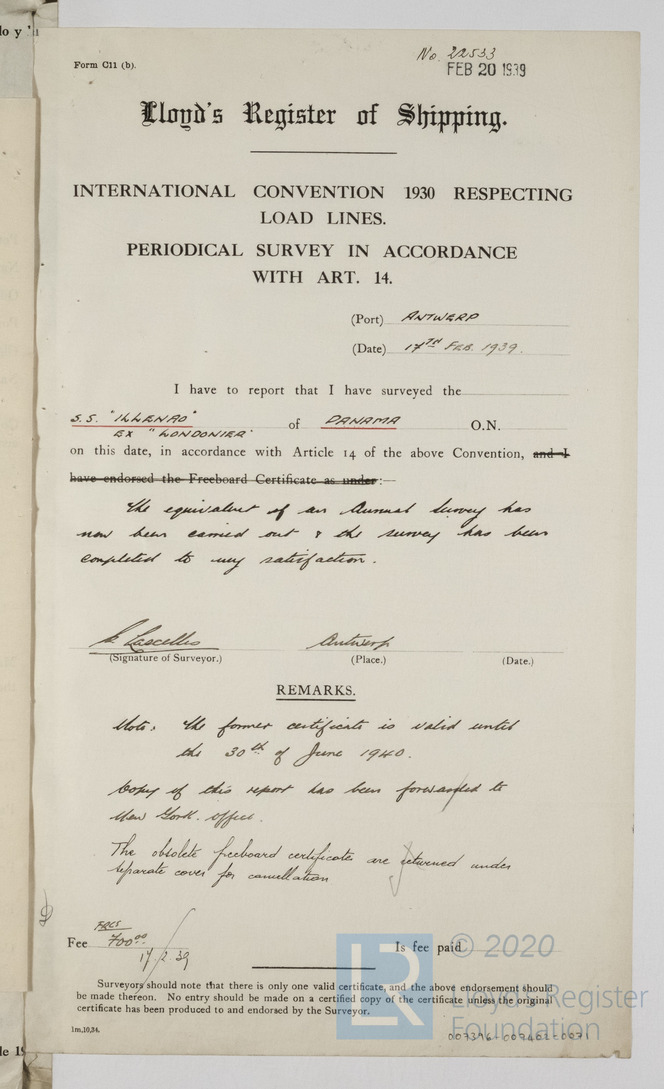 Form C11 (b).
No. 22533
FEB 20 1939
Lloyd's Register of Shipping.
INTERNATIONAL CONVENTION 1930 RESPECTING
LOAD LINES.
PERIODICAL SURVEY IN ACCORDANCE
WITH ART. 14.
(Port) ANTWERP
(Date) 17TH FEB. 1939.
I have to report that I have surveyed the
S.S. "ILLENAO" of PANAMA O.N.
EX "LONDONIER"
on this date, in accordance with Article 14 of the above Convention, and I
have endorsed the Freeboard Certificate as under:—
The equivalent of an Annual Survey has
now been carried out & the survey has been
completed to my satisfaction.
Lascelles Antwerp
(Signature of Surveyor.) (Place.) (Date.)
REMARKS.
Note: The former certificate is valid until
the 30th of June 1940.
Copy of this report has been forwarded to
New York office.
The obsolete freeboard certificates are returned under
separate cover for cancellation
FRCS
Fee 700.00 Is fee paid
17/2/39
© 2020
Surveyors should note that there is only one valid certificate, and the above endorsement should
be made thereon. No entry should be made on a certified copy of the certificate unless the original
certificate has been produced to and endorsed by the Surveyor.
LR
Lloyd's Register
Foundation
1m,10,34.
007396-007402-0071